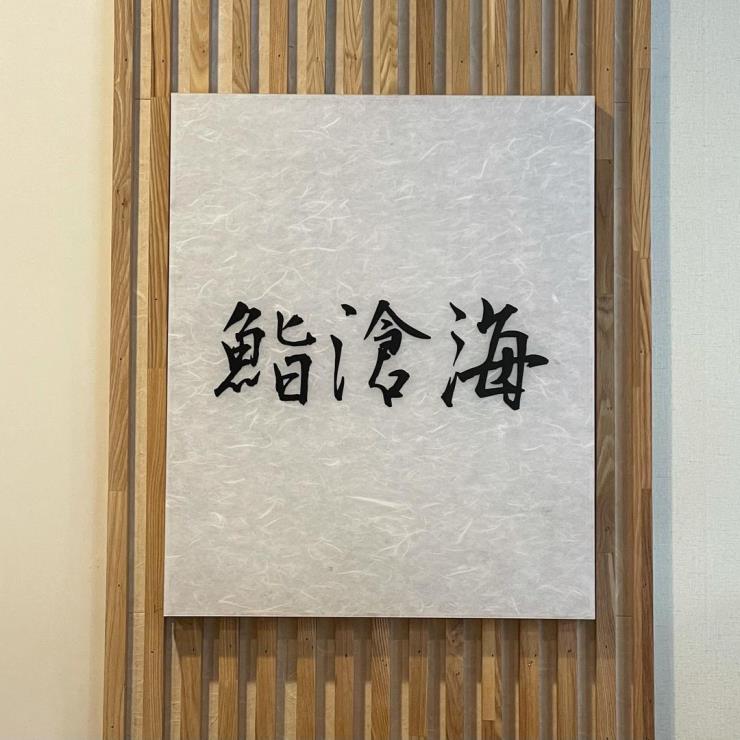 鮨滄海